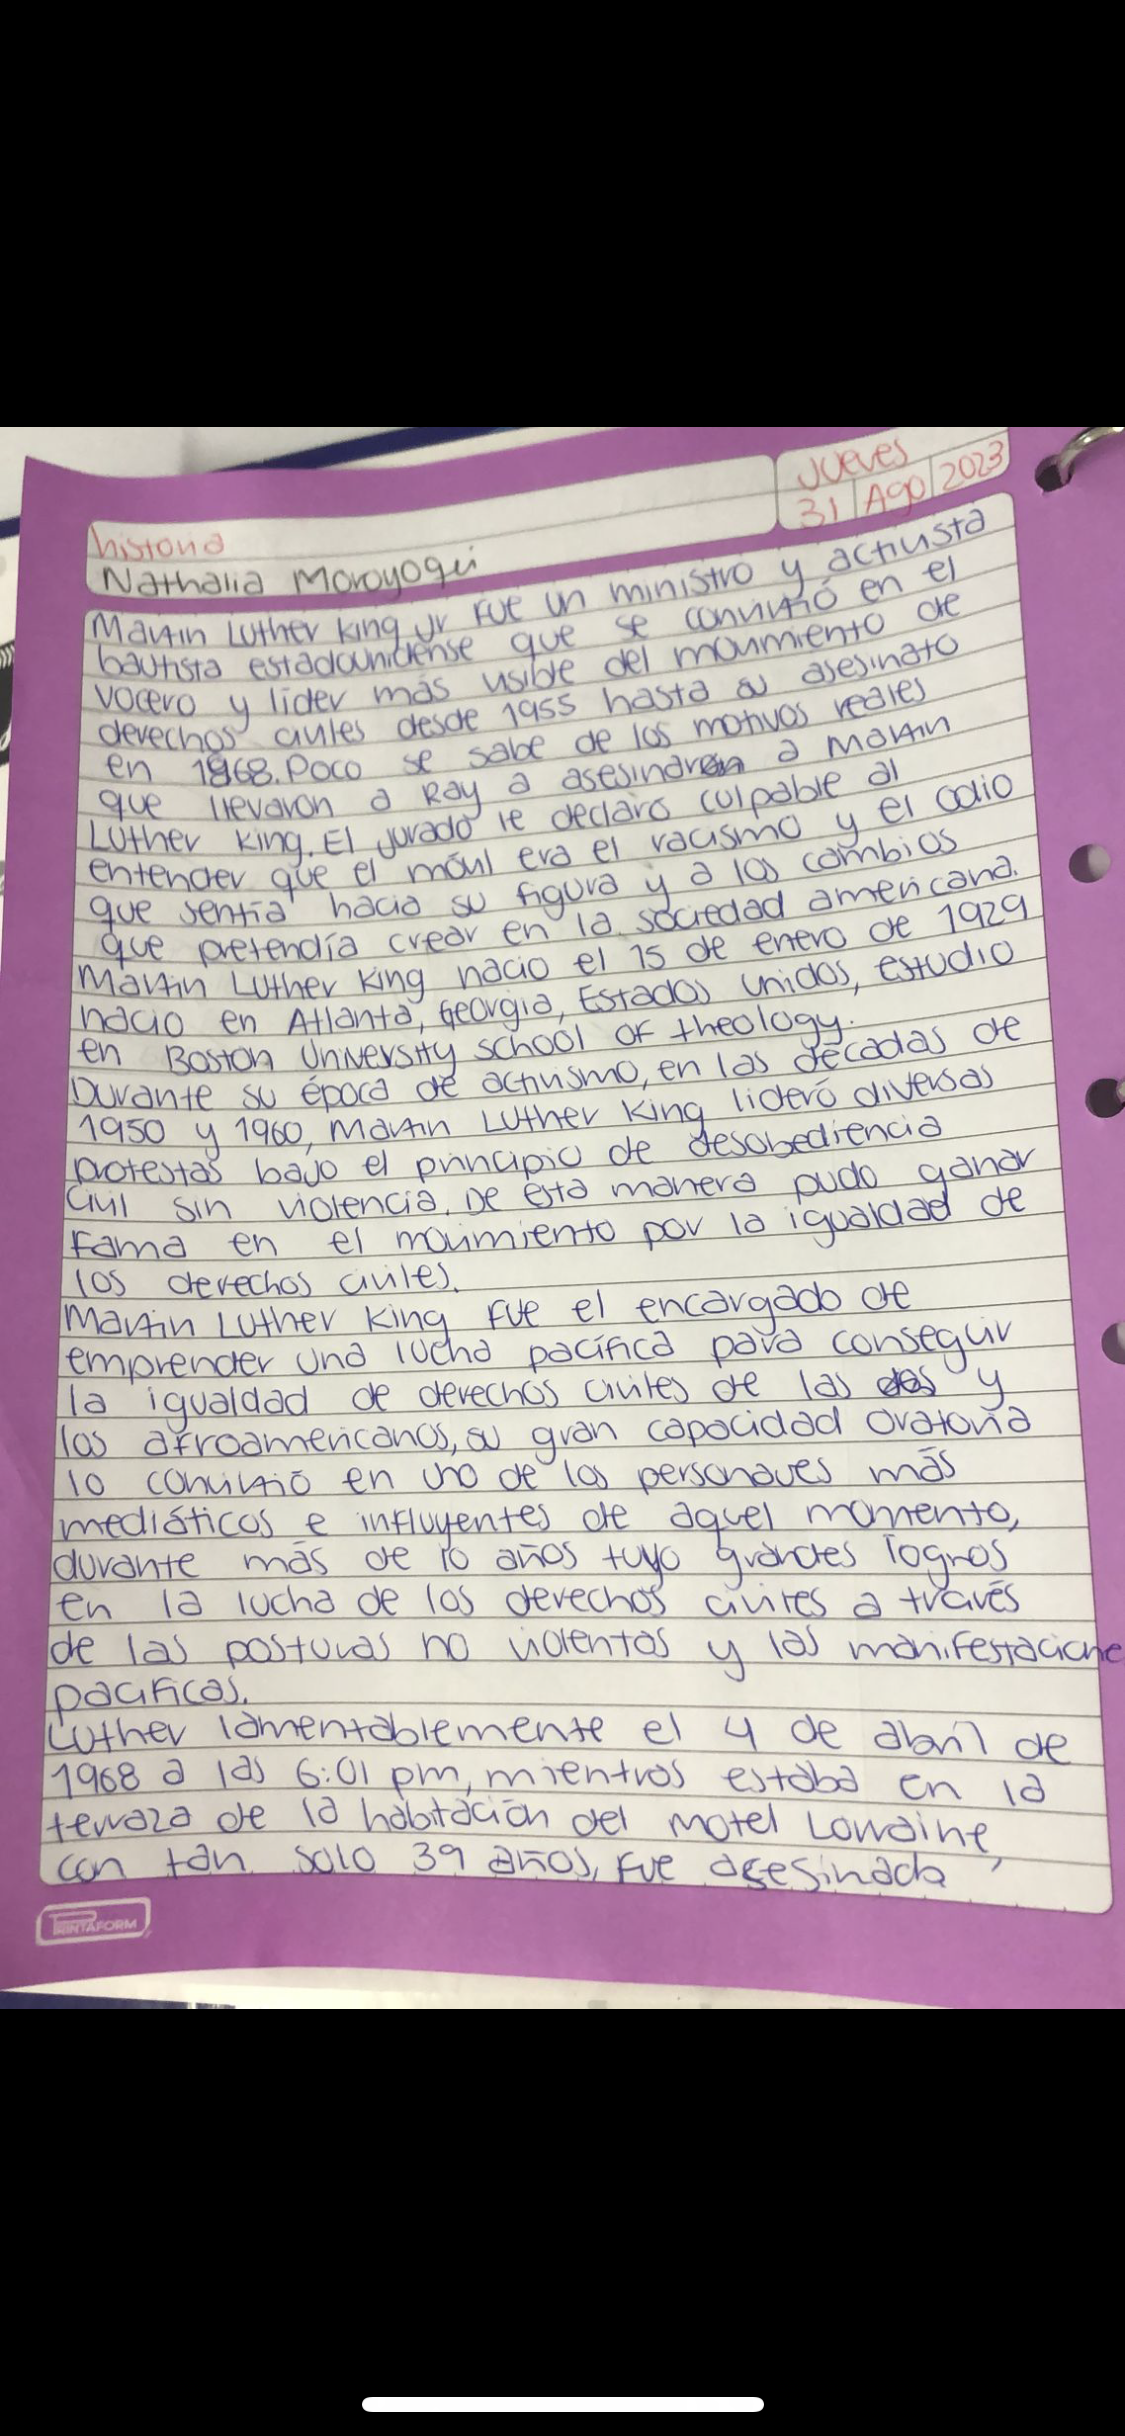 Jueves
31 Ago 2023
historia
Nathalia Moroyoqui
Martin Luther king Jr Fue un ministro y activista
bautista estadounidense que se convirtió en el
vocero y líder más visible del movimiento de
derechos civiles desde 1955 hasta su asesinato
en 1968. Poco se sabe de los motivos reales
que llevaron a Ray a asesinar a Martin
Luther King. El jurado le declaró culpable al
entender que el móvil era el racismo y el odio
que sentía hacia su figura y a los cambios
que pretendía crear en la sociedad americana.
Martin Luther King nacio el 15 de enero de 1929
nacio en Atlanta, Georgia, Estados Unidos, estudio
en Boston University school of theology.
Durante su época de activismo, en las décadas de
1950 y 1960, Martin Luther King lideró diversas
protestas bajo el principio de desobediencia
civil sin violencia. De esta manera pudo ganar
Fama en el movimiento por la igualdad de
los derechos civiles.
Martin Luther King Fue el encargado de
emprender una lucha pacífica para conseguir
la igualdad de derechos civiles de las y
los afroamericanos, su gran capacidad oratoria
lo convirtió en uno de los personaves más
mediáticos e influyentes de aquel momento,
durante más de 10 años tuvo grandes logros
en la lucha de los derechos civiles a través
de las posturas no violentas y las manifestacione
pacificas.
Luther lamentablemente el 4 de abril de
1968 a las 6:01 pm, mientras estaba en la
terraza de la habitación del motel Lorraine,
con tan solo 39 años, Fue asesinado
PRINTAFORM